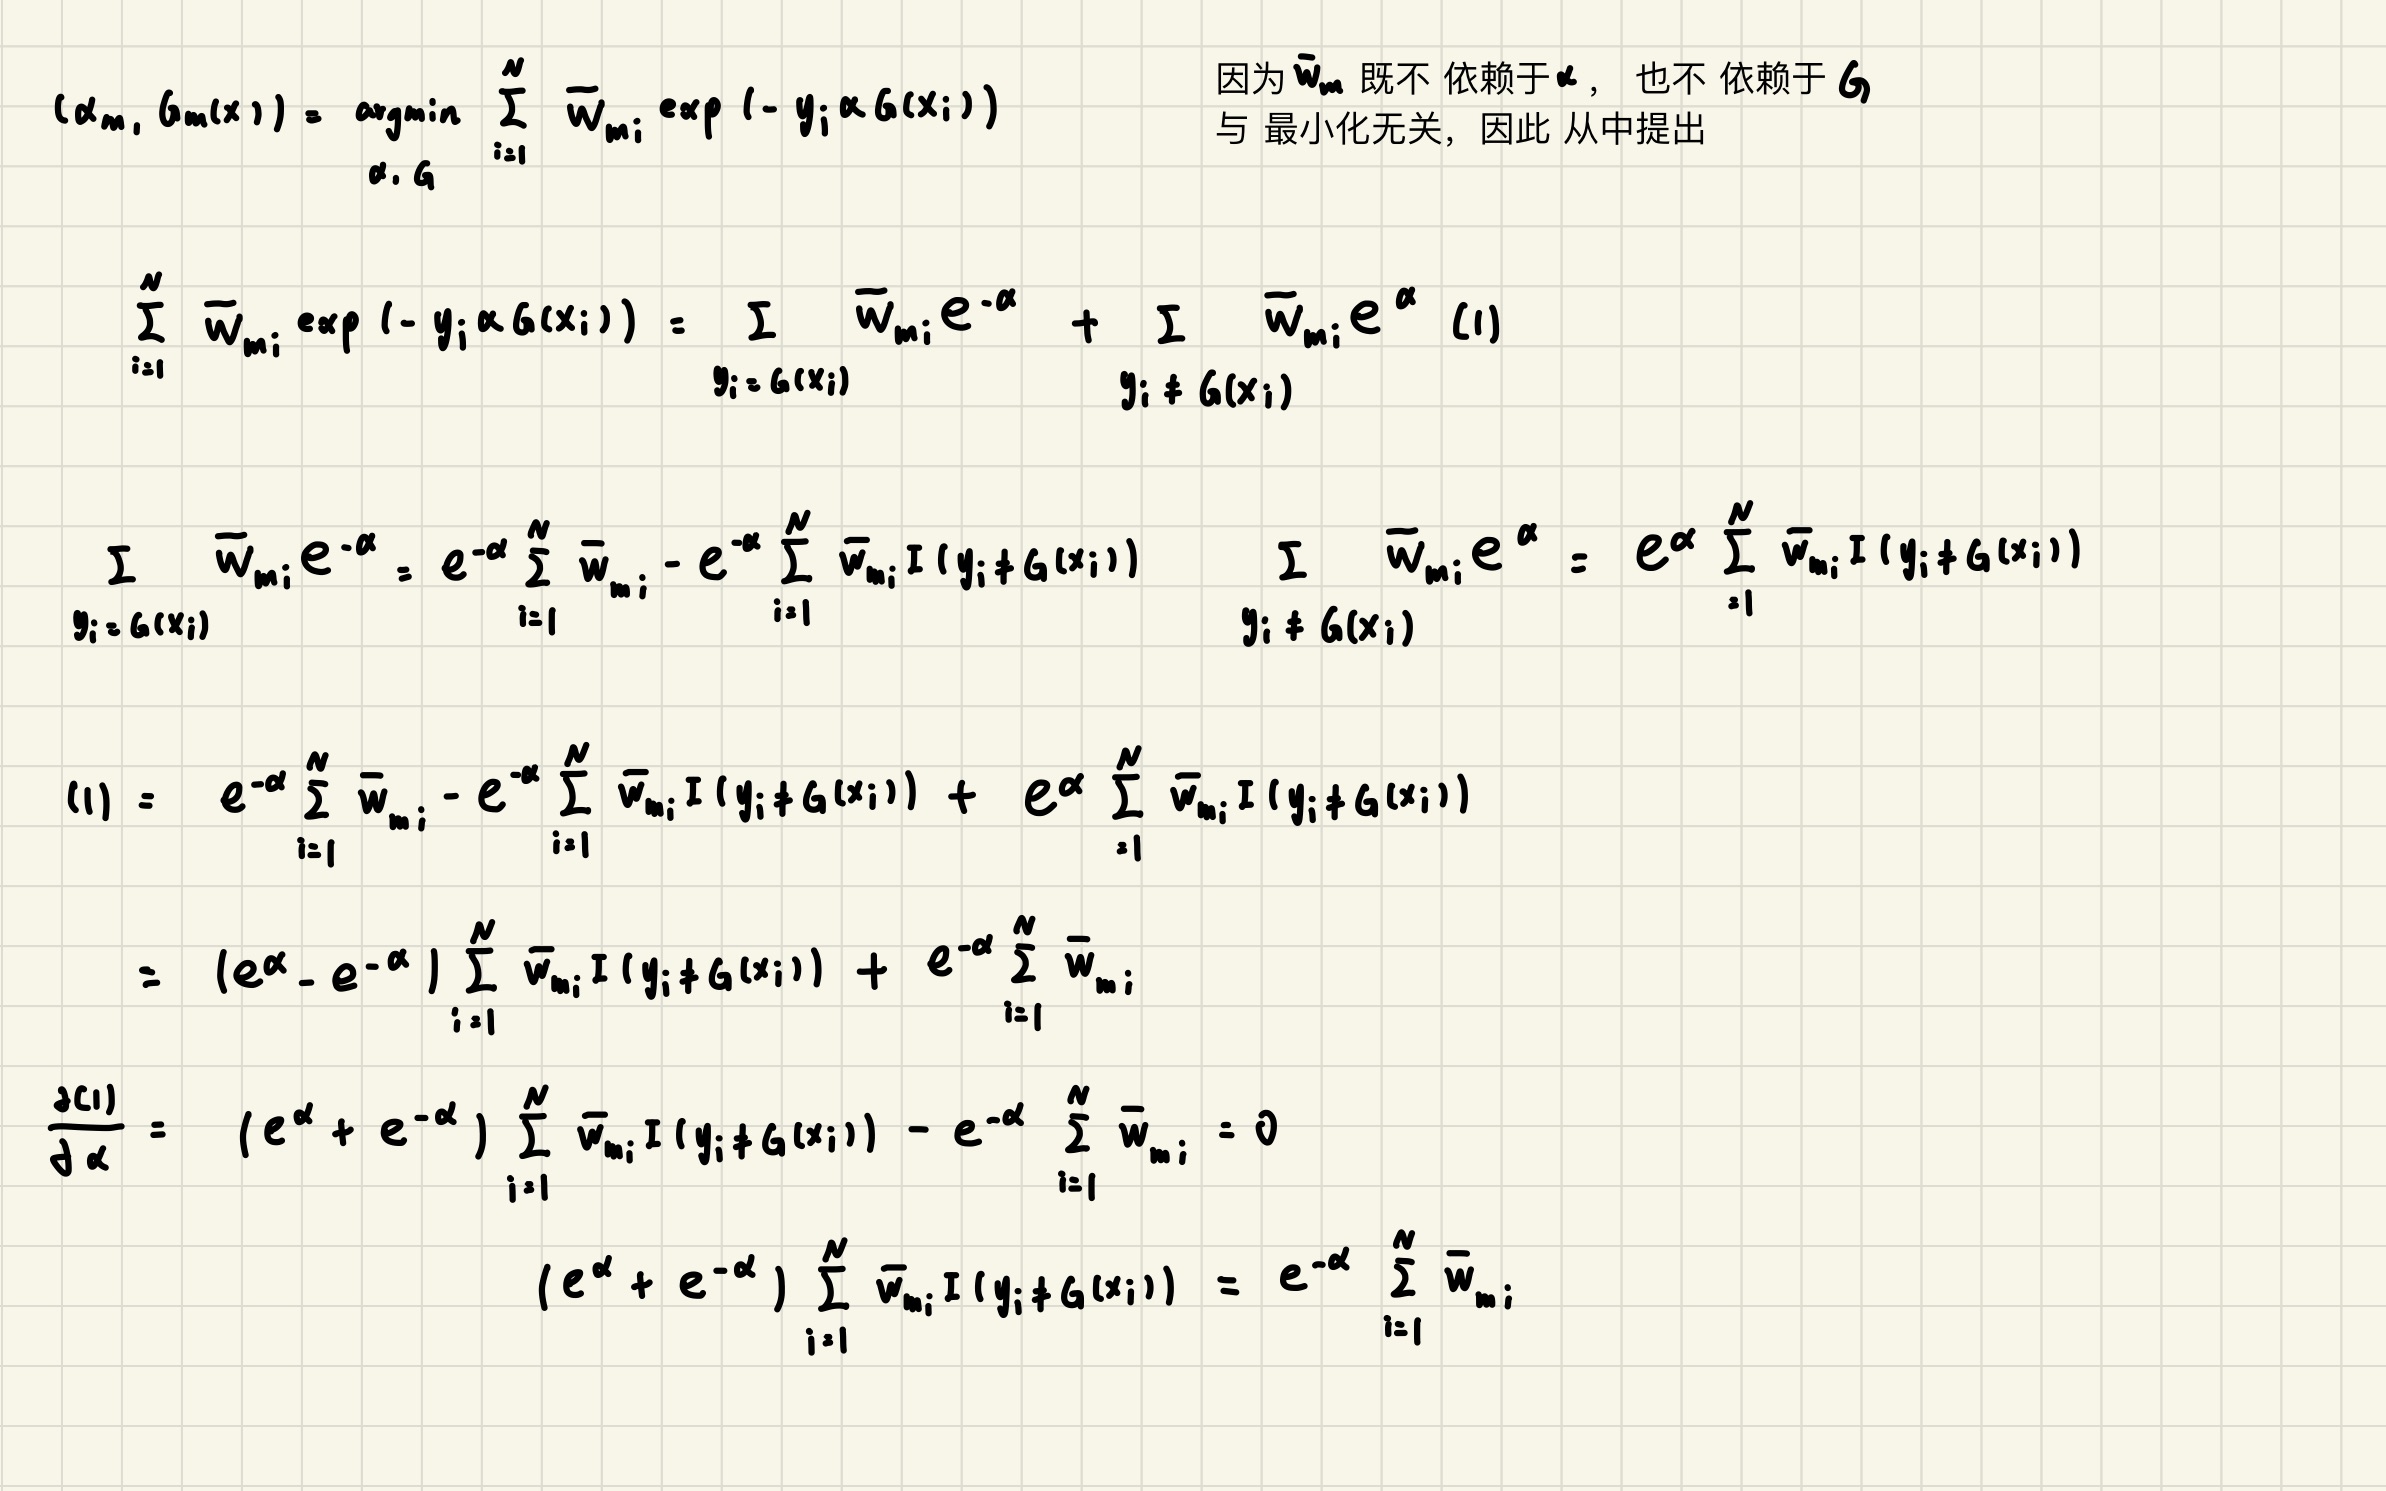 (α_m, G_m(x)) = argmin_{α, G} Σ_{i=1}^{N} w̄_{mi} exp(-y_i α G(x_i))
因为 w̄_m 既不 依赖于 α, 也不 依赖于 G,
与 最小化无关, 因此 从中提出
Σ_{i=1}^{N} w̄_{mi} exp(-y_i α G(x_i)) = Σ_{y_i = G(x_i)} w̄_{mi} e^{-α} + Σ_{y_i ≠ G(x_i)} w̄_{mi} e^{α} (1)
Σ_{y_i = G(x_i)} w̄_{mi} e^{-α} = e^{-α} Σ_{i=1}^{N} w̄_{mi} - e^{-α} Σ_{i=1}^{N} w̄_{mi} I(y_i ≠ G(x_i))
Σ_{y_i ≠ G(x_i)} w̄_{mi} e^{α} = e^{α} Σ_{=1}^{N} w̄_{mi} I(y_i ≠ G(x_i))
(1) = e^{-α} Σ_{i=1}^{N} w̄_{mi} - e^{-α} Σ_{i=1}^{N} w̄_{mi} I(y_i ≠ G(x_i)) + e^{α} Σ_{=1}^{N} w̄_{mi} I(y_i ≠ G(x_i))
= (e^{α} - e^{-α}) Σ_{i=1}^{N} w̄_{mi} I(y_i ≠ G(x_i)) + e^{-α} Σ_{i=1}^{N} w̄_{mi}
∂(1)/∂α = (e^{α} + e^{-α}) Σ_{i=1}^{N} w̄_{mi} I(y_i ≠ G(x_i)) - e^{-α} Σ_{i=1}^{N} w̄_{mi} = 0
(e^{α} + e^{-α}) Σ_{i=1}^{N} w̄_{mi} I(y_i ≠ G(x_i)) = e^{-α} Σ_{i=1}^{N} w̄_{mi}